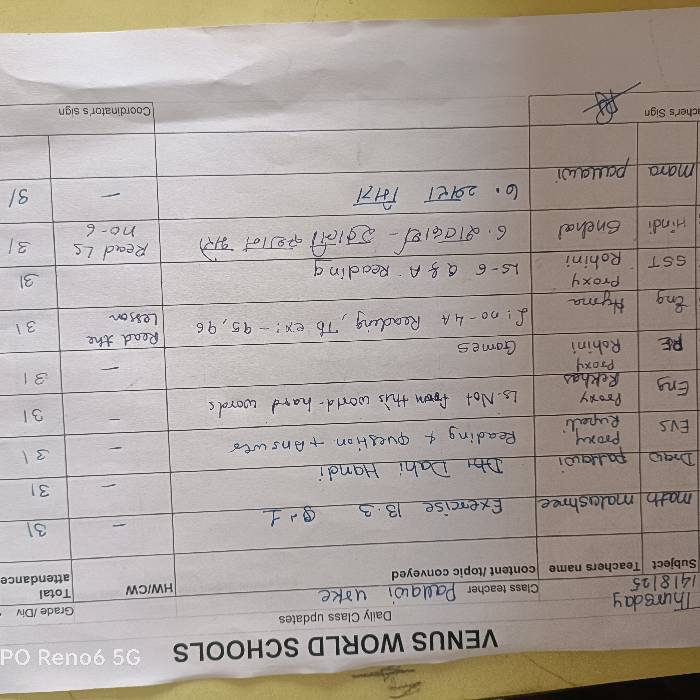 VENUS WORLD SCHOOLS
Daily Class updates
Thursday
14/8/25 Class teacher Pallawi uske Grade /Div
Subject Teachers name content/topic conveyed HW/CW Total attendance
math malashree Exercise 13.3 Q.1 - 31
Draw pallawi Dahi Handi - 31
EVS Proxy Rupali Reading & question + Answers - 31
Eng Proxy Rekhas Ls. Not from this world - hard words - 31
PE Proxy Rohini Games - 31
Eng Hyma L: no-4A Reading, Tb ex:- 95, 96 Read the Lesson 31
SST Proxy Rohini LS-6 Q & A Reading 31
Hindi Snehal 6. Read LS no-6 31
mara pallawi 6. - 31
acher's Sign Coordinator's sign
PO Reno6 5G